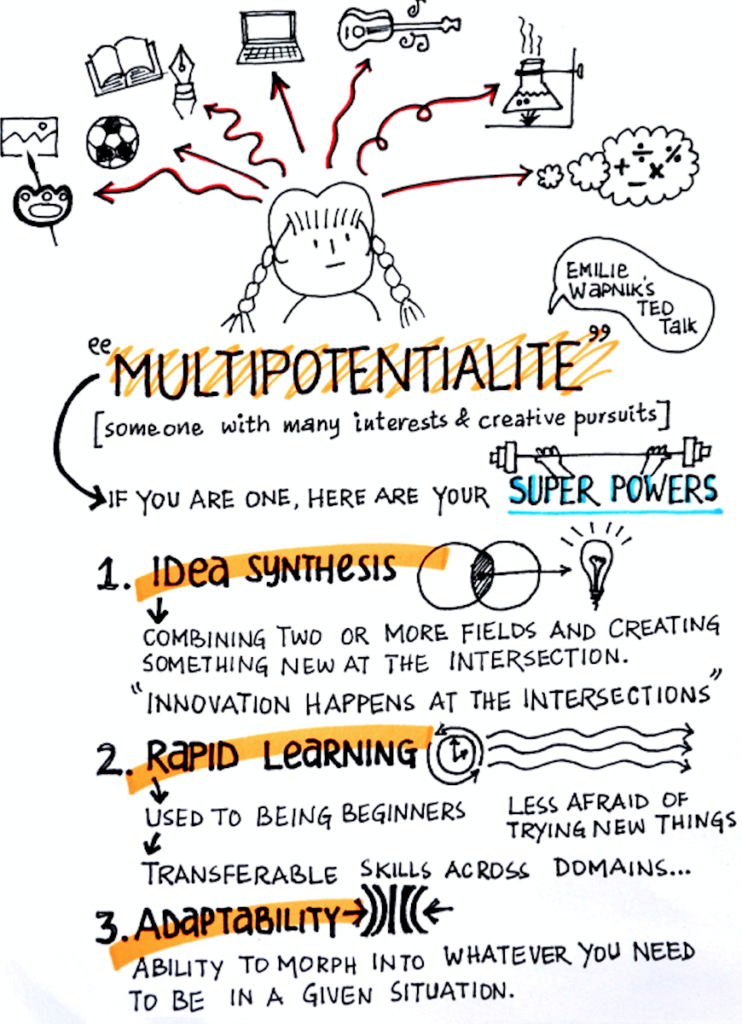 EMILIE
WAPNIK'S
TED
Talk
"MULTIPOTENTIALITE"
[someone with many interests & creative pursuits]
IF YOU ARE ONE, HERE ARE YOUR SUPER POWERS
1. IDea SYNTHESIS
COMBINING TWO OR MORE FIELDS AND CREATING
SOMETHING NEW AT THE INTERSECTION.
"INNOVATION HAPPENS AT THE INTERSECTIONS"
2. RaPID LeaRNING
USED TO BEING BEGINNERS
LESS AFRAID OF
TRYING NEW THINGS
TRANSFERABLE SKILLS ACROSS DOMAINS...
3. ADaPTaBILITY
ABILITY TO MORPH INTO WHATEVER YOU NEED
TO BE IN A GIVEN SITUATION.